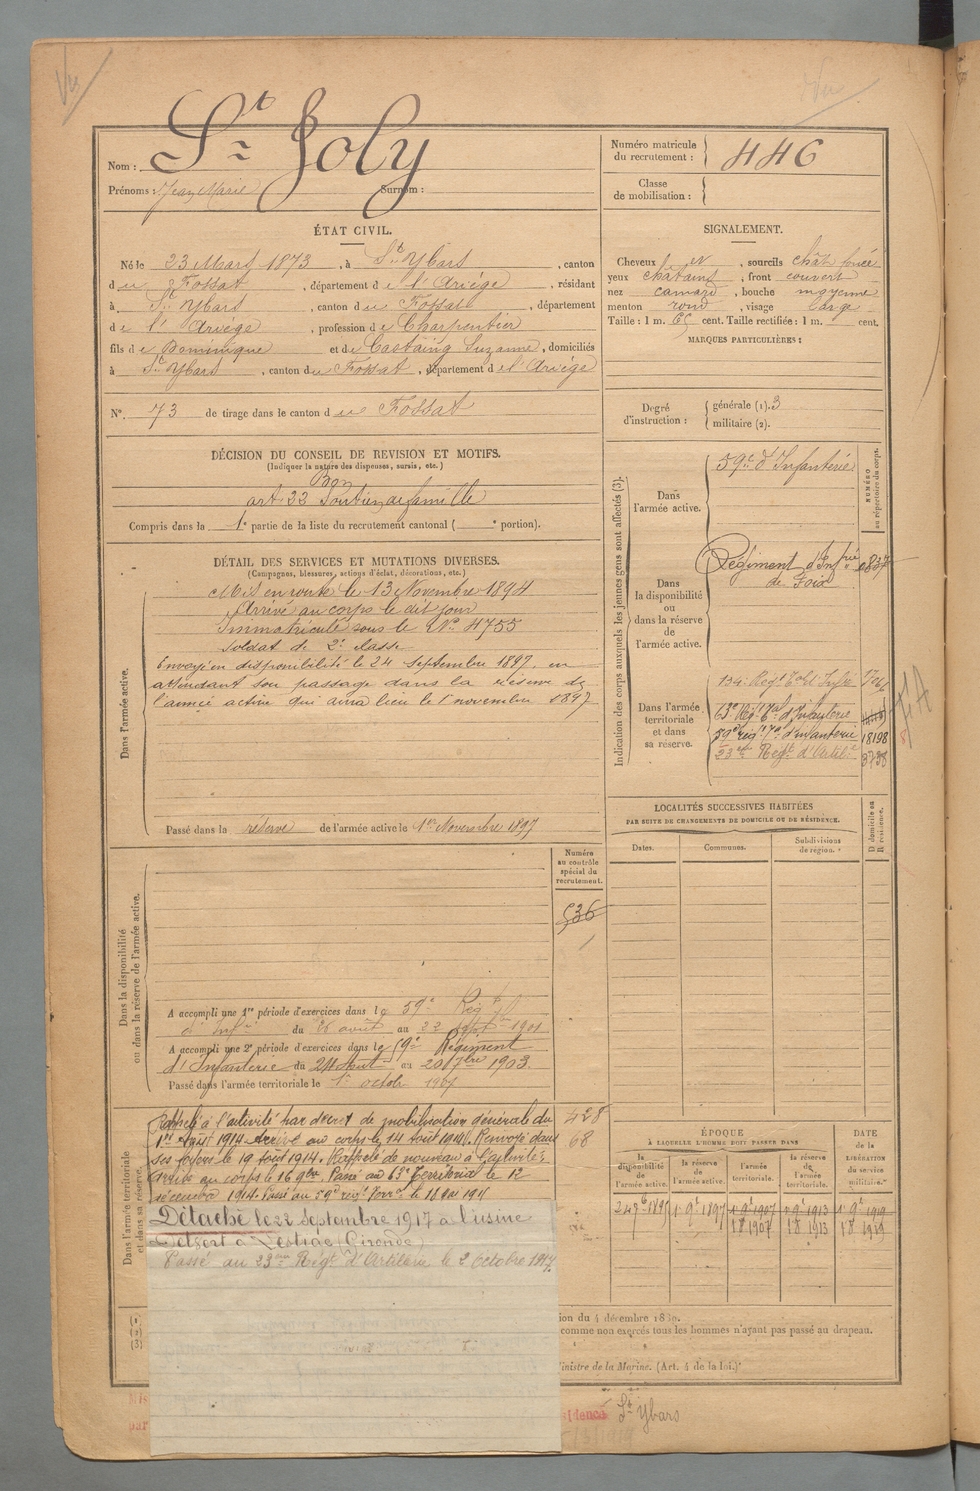 Vu
Vu
Nom : St Joly
Prénoms : Jean Marie Surnom :
Numéro matricule
du recrutement : 446
Classe
de mobilisation :
ÉTAT CIVIL.
Né le 23 Mars 1873, à St Ybars, canton
du Fossat, département de l'Ariège, résidant
à St Ybars, canton du Fossat, département
de l'Ariège, profession de Charpentier
fils de Dominique et de Castaing Suzanne, domiciliés
à St Ybars, canton du Fossat, département de l'Ariège
No. 73 de tirage dans le canton du Fossat
SIGNALEMENT.
Cheveux et, sourcils chât. foncé
yeux châtains, front couvert
nez camard, bouche moyenne
menton rond, visage large
Taille : 1 m. 65 cent. Taille rectifiée : 1 m. cent.
MARQUES PARTICULIÈRES :
Degré
d'instruction :
générale (1). 3
militaire (2).
DÉCISION DU CONSEIL DE REVISION ET MOTIFS.
(Indiquer la nature des dispenses, sursis, etc.)
Bon
art. 22 Soutien de famille
Compris dans la 1e partie de la liste du recrutement cantonal ( e portion).
DÉTAIL DES SERVICES ET MUTATIONS DIVERSES.
(Campagnes, blessures, actions d'éclat, décorations, etc.)
Dans l'armée active.
Mis en route le 13 Novembre 1894
Arrivé au corps le dit jour
Immatriculé sous le No 4755
Soldat de 2e classe
Envoyé en disponibilité le 24 septembre 1897, en
attendant son passage dans la réserve de
l'armée active qui aura lieu le 1er novembre 1897
Passé dans la réserve de l'armée active le 1er Novembre 1897
Indication des corps auxquels les jeunes gens sont affectés (3).
NUMÉRO
au répertoire du corps.
Dans
l'armée active.
59e d'Infanterie
Dans
la disponibilité
ou
dans la réserve
de
l'armée active.
Régiment d'Infrie
de Foix
0837
Dans l'armée
territoriale
et dans
sa réserve.
134e Regt Tal Infie
63e Rég. Tal d'Infanterie
59e rég. Tal d'infanterie 18198
23e Regt d'Artile 3738
LOCALITÉS SUCCESSIVES HABITÉES
PAR SUITE DE CHANGEMENTS DE DOMICILE OU DE RÉSIDENCE.
Dates.
Communes.
Subdivisions
de région.
D domicile ou
R résidence.
Numéro
au contrôle
spécial du
recrutement.
536
Dans la disponibilité
ou dans la réserve de l'armée active.
A accompli une 1re période d'exercices dans le 59e Régt
d'Infie du 26 août au 22 sept 1901
A accompli une 2e période d'exercices dans le 59e Régiment
d'Infanterie du 24 Août au 20 7bre 1903
Passé dans l'armée territoriale le 1er octobre 1907
Dans l'armée territoriale
et dans sa réserve.
Rappelé à l'activité par décret de mobilisation générale du
1er Août 1914. Arrivé au corps le 14 août 1914. Renvoyé dans
ses foyers le 19 août 1914. Rappelé de nouveau à l'activité
Arrivé au corps le 16 9bre. Passé au 63e Territorial le 12
décembre 1914. Passé au 59e rég. Terral le
428
68
Détaché le 22 Septembre 1917 à l'usine
à (Gironde)
Passé au 23eme Régt d'Artillerie le 2 Octobre 1917.
ÉPOQUE
À LAQUELLE L'HOMME DOIT PASSER DANS
DATE
de la
LIBÉRATION
du service
militaire.
la
disponibilité
de
l'armée active.
la réserve
de
l'armée active.
l'armée
territoriale.
la réserve
de
l'armée
territoriale.
24 7e 1897 1 9e 1897 1 9e 1907 1 9e 1913 1 9e 1919
1 8 1907 1 8 1913 1 8 1919
(1)
(2)
(3)
ion du 4 décembre 1889.
comme non exercés tous les hommes n'ayant pas passé au drapeau.
Ministre de la Marine. (Art. 4 de la loi.)
par
sidence St Ybars